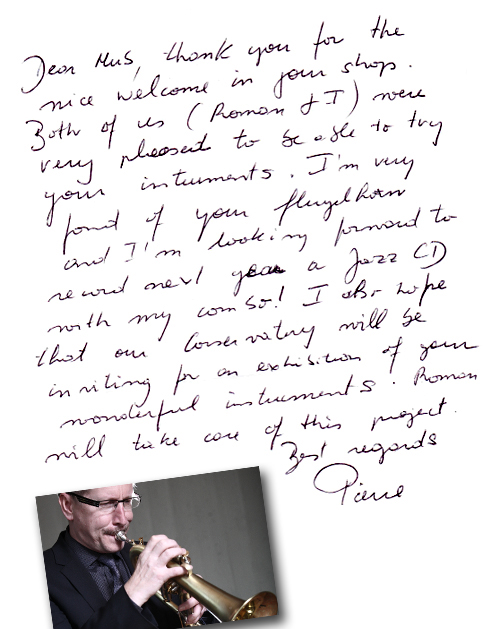 Dear Mus, thank you for the
nice welcome in your shop.
Both of us (Roman & I) were
very pleased to be able to try
your instruments. I'm very
fond of your flugelhorn
and I'm looking forward to
record next year a Jazz CD
with my combo! I also hope
that our Conservatory will be
inviting for an exhibition of your
wonderful instruments. Roman
will take care of this project.
Best regards
Pierre